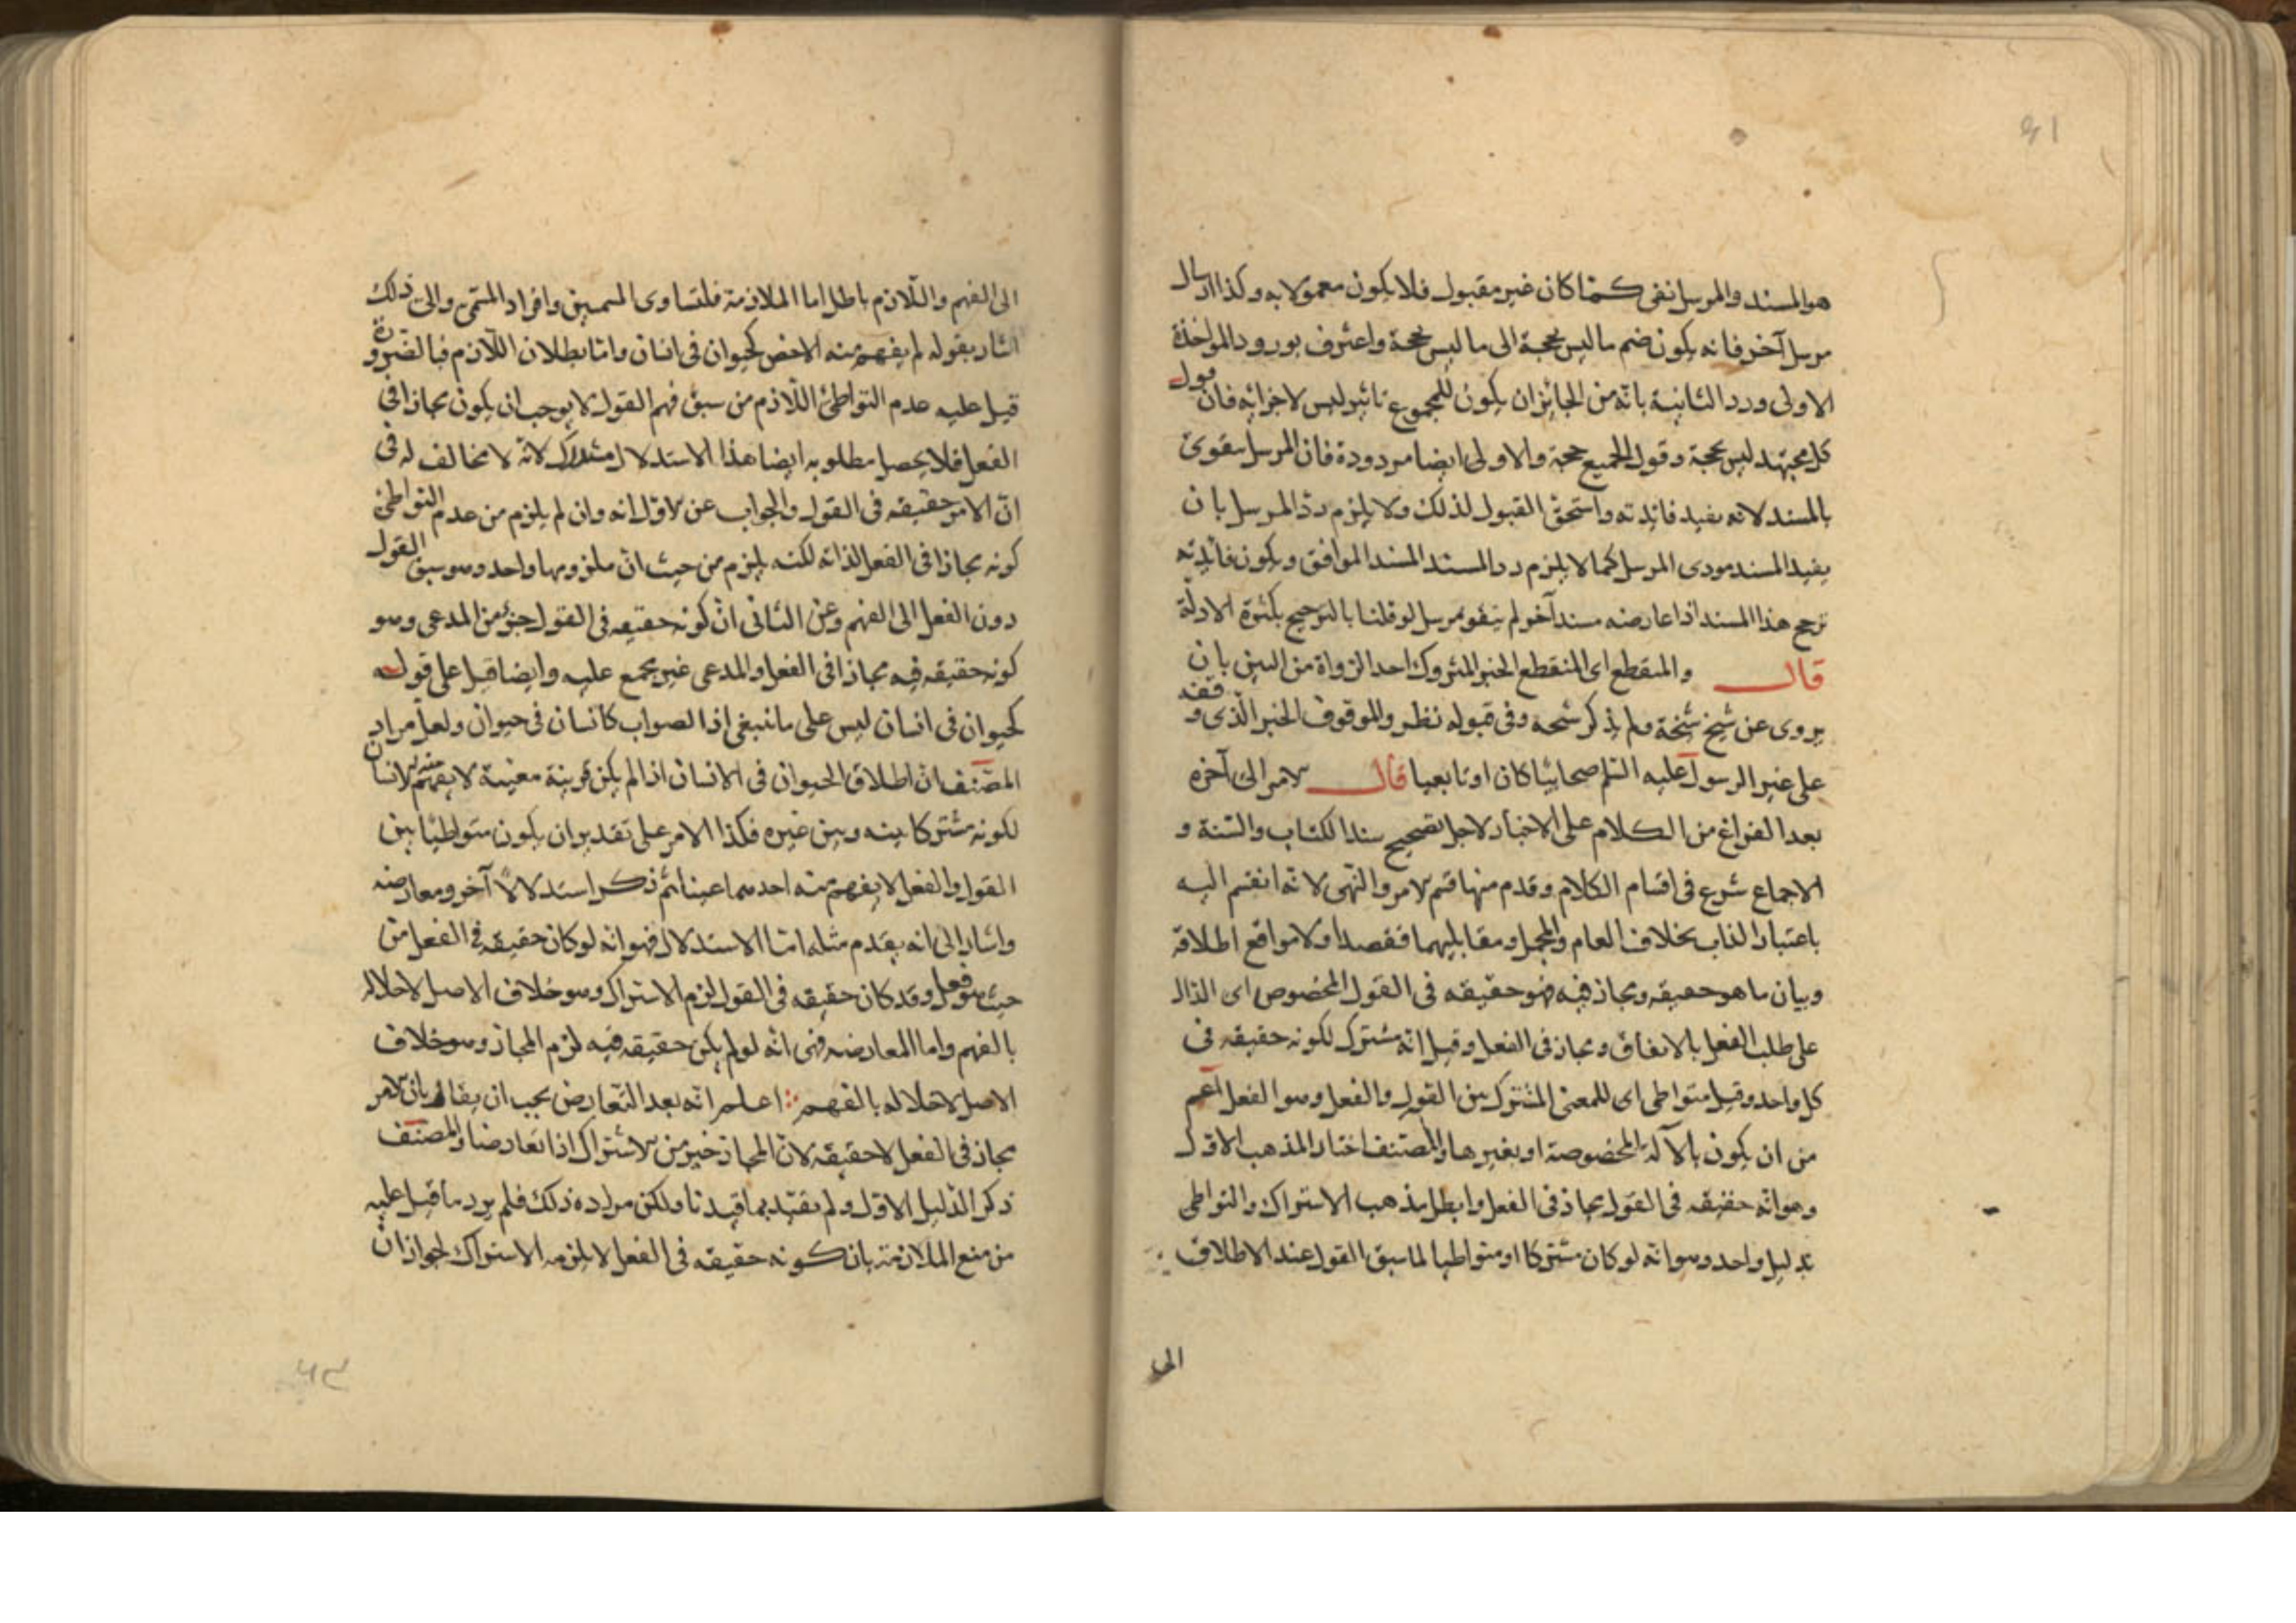 هو المسند والمرسل نفى كمتا كان غير مقبول فلا يكون معمولا به وكذا ارسال
مرسل آخر فانه يكون ضم ما ليس بحجة الى ما ليس بحجة واعترف بورود المواخذة
الاولى ورد الثانية بانه من الجائز ان يكون للمجموع تاثير ليس لاجزائه فان قول
كل مجتهد ليس بحجة وقول الجميع حجة والاولى ايضا مردودة فان المرسل يتقوى
بالمسند لانه يفيد فائدته واستحق القبول لذلك ولا يلزم رد المرسل بان
يفيد المسند مودى المرسل كما لا يلزم رد المسند المسند الموافق ويكون فائدته
ترجح هذا المسند اذا عارضه مسند آخر لم يتقو بمرسل لو قلنا بالترجيح بكثرة الادلة
قال والمنقطع اى المنقطع الخبر المتروك احد الرواة من البين بان
يروى عن شيخ شيخة ولم يذكر شيخه وفى قبوله نظر والموقوف الخبر الذى وقف
على غير الرسول عليه السلم صحابيا كان او تابعيا قال الامر الى آخره
بعد الفراغ من الكلام على الاخبار لاجل تصحيح سند الكتاب والسنة و
الاجماع شرع فى اقسام الكلام وقدم منها قسم الامر والنهى لانه انقسم اليه
باعتبار الذات بخلاف العام والمجمل ومقابليهما فقصد اولا مواقع اطلاقه
وبيان ما هو حقيقه ومجاز فيه فهو حقيقه فى القول المخصوص اى الدال
على طلب الفعل بالاتفاق ومجاز فى الفعل وقيل انه مشترك لكونه حقيقه فى
كل واحد وقيل متواطى اى للمعنى المشترك بين القول والفعل وهو الفعل اعم
من ان يكون بالآلة المخصوصة او بغيرها والمصنف اختار المذهب الاول
وهو انه حقيقه فى القول مجاز فى الفعل وابطل مذهب الاشتراك والتواطى
بدليل واحد وهو انه لو كان مشتركا او متواطيا لما سبق القول عند الاطلاق
الى
الى الفهم واللازم باطل اما الملازمة فلتساوى المسميين وافراد المسمى والى ذلك
اشار بقوله لم يفهم منه الاخص كحيوان فى انسان واما بطلان اللازم فبالضرورة
قيل عليه عدم التواطئ اللازم من سبق فهم القول لا يوجب ان يكون مجازا فى
الفعل فلا يحصل مطلوبه ايضا هذا الاستدلال مستدرك لانه لا مخالف له فى
ان الامر حقيقه فى القول والجواب عن الاول انه وان لم يلزم من عدم التواطئ
كونه مجازا فى الفعل لذاته لكنه يلزم من حيث ان ملزومهما واحد وهو سبق القول
دون الفعل الى الفهم وعن الثانى ان كونه حقيقه فى القول جزء من المدعى وهو
كونه حقيقه فيه مجازا فى الفعل والمدعى غير مجمع عليه وايضا قيل على قوله
كحيوان فى انسان ليس على ما ينبغى اذ الصواب كانسان فى حيوان ولعل مراد
المصنف ان اطلاق الحيوان فى الانسان اذا لم يكن قرينة معينة لا يفهم منه الانسان
لكونه مشتركا بينه وبين غيره فكذا الامر على تقدير ان يكون متواطيا بين
القول والفعل لا يفهم منه احدهما عينا ثم ذكر استدلالا آخر ومعارضه
واشار الى انه يقدم مثله اما الاستدلال فهو انه لو كان حقيقه فى الفعل من
حيث هو فعل وقد كان حقيقه فى القول لزم الاشتراك وهو خلاف الاصل لاخلاله
بالفهم واما المعارضه فهى انه لو لم يكن حقيقه فيه لزم المجاز وهو خلاف
الاصل لاخلاله بالفهم ؞ اعلم انه بعد التعارض يجب ان يقال بان الامر
مجاز فى الفعل لا حقيقه لان المجاز خير من الاشتراك اذا تعارضا والمصنف
ذكر الدليل الاول ولم يقيد بما قيدنا ولكن مراده ذلك فلم يرد ما قيل عليه
من منع الملازمة بان كونه حقيقه فى الفعل لا يلزمه الاشتراك لجواز ان